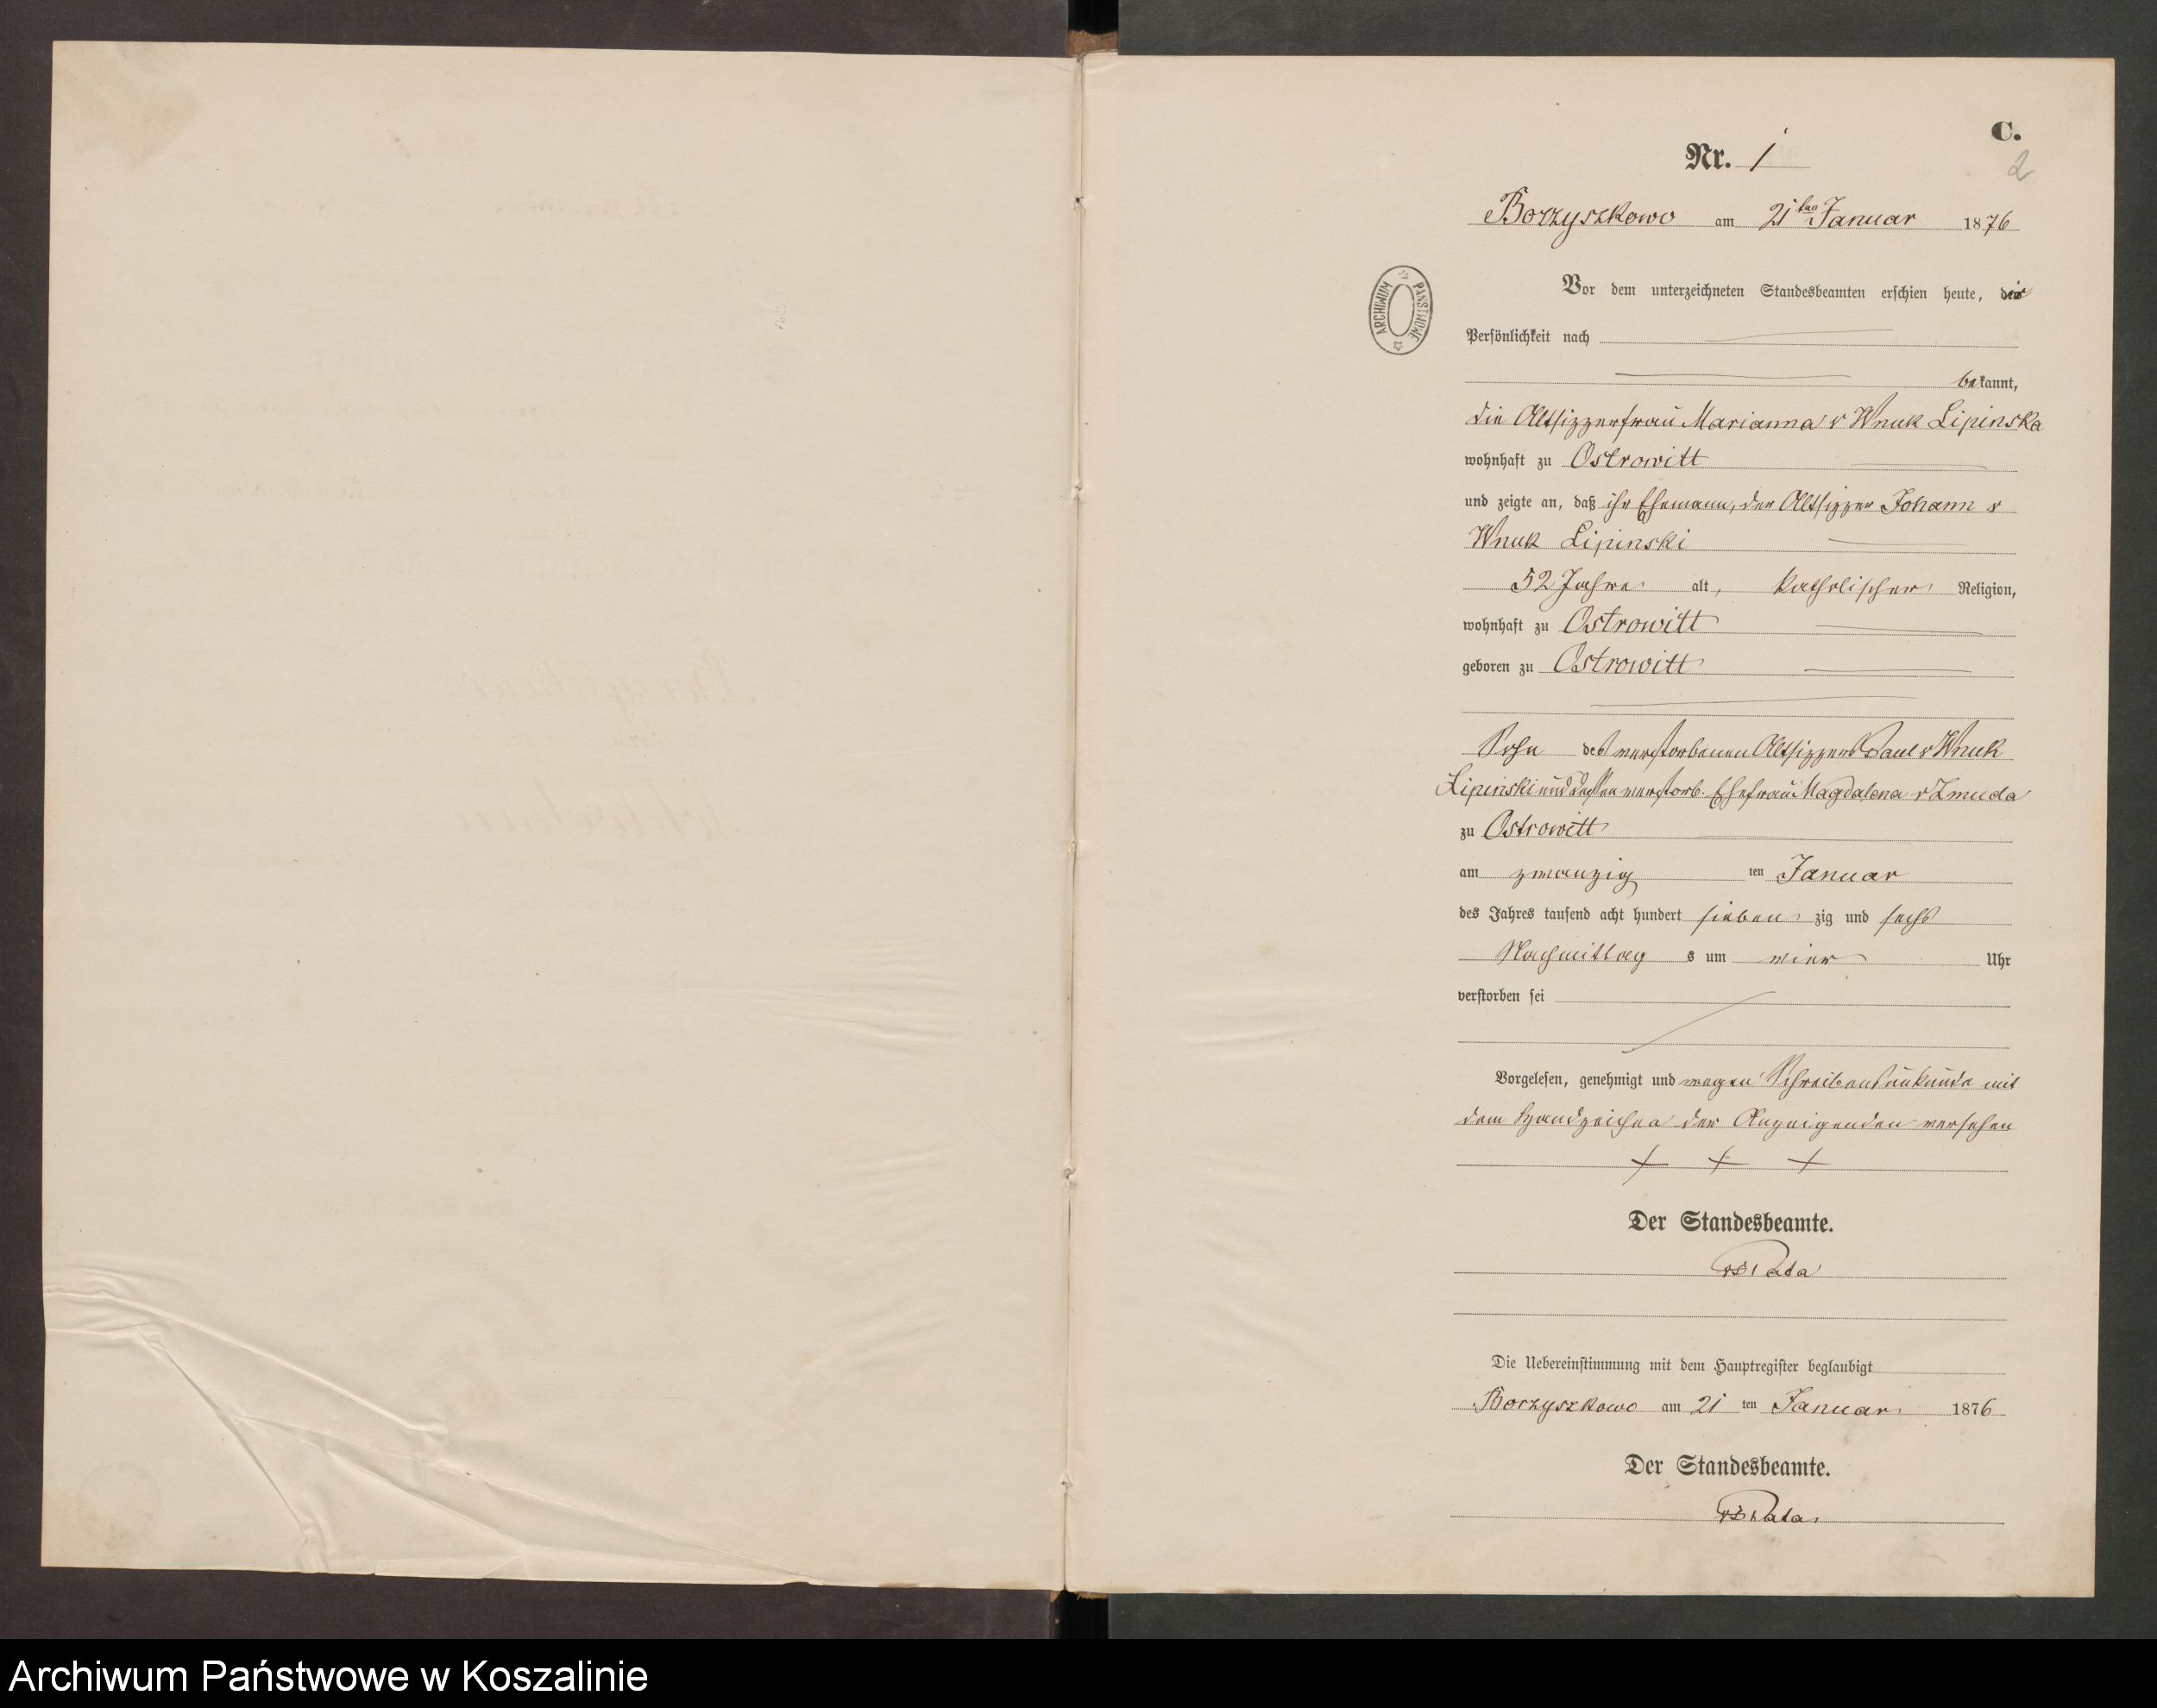 C.
2
Nr. 1
Borzyszkowo am 21ten Januar 1876
Vor dem unterzeichneten Standesbeamten erschien heute, die
ARCHIWUM PAŃSTWOWE
Persönlichkeit nach
bekannt,
die Altsitzerfrau Marianna v Wnuk Lipinska
wohnhaft zu Ostrowitt
und zeigte an, daß ihr Ehemann, der Altsitzer Johann v
Wnuk Lipinski
52 Jahre alt, katholischer Religion,
wohnhaft zu Ostrowitt
geboren zu Ostrowitt
Sohn des verstorbenen Altsitzers Paul v Wnuk
Lipinski und dessen verstorb. Ehefrau Magdalena v Zmuda
zu Ostrowitt
am zwanzig ten Januar
des Jahres tausend acht hundert sieben zig und sechs
Nachmittag s um vier Uhr
verstorben sei
Vorgelesen, genehmigt und wegen Schreibensunkunde mit
dem Handzeichen der Anzeigenden versehen
+ + +
Der Standesbeamte.
Die Uebereinstimmung mit dem Hauptregister beglaubigt
Borzyszkowo am 21 ten Januar 1876
Der Standesbeamte.
Archiwum Państwowe w Koszalinie